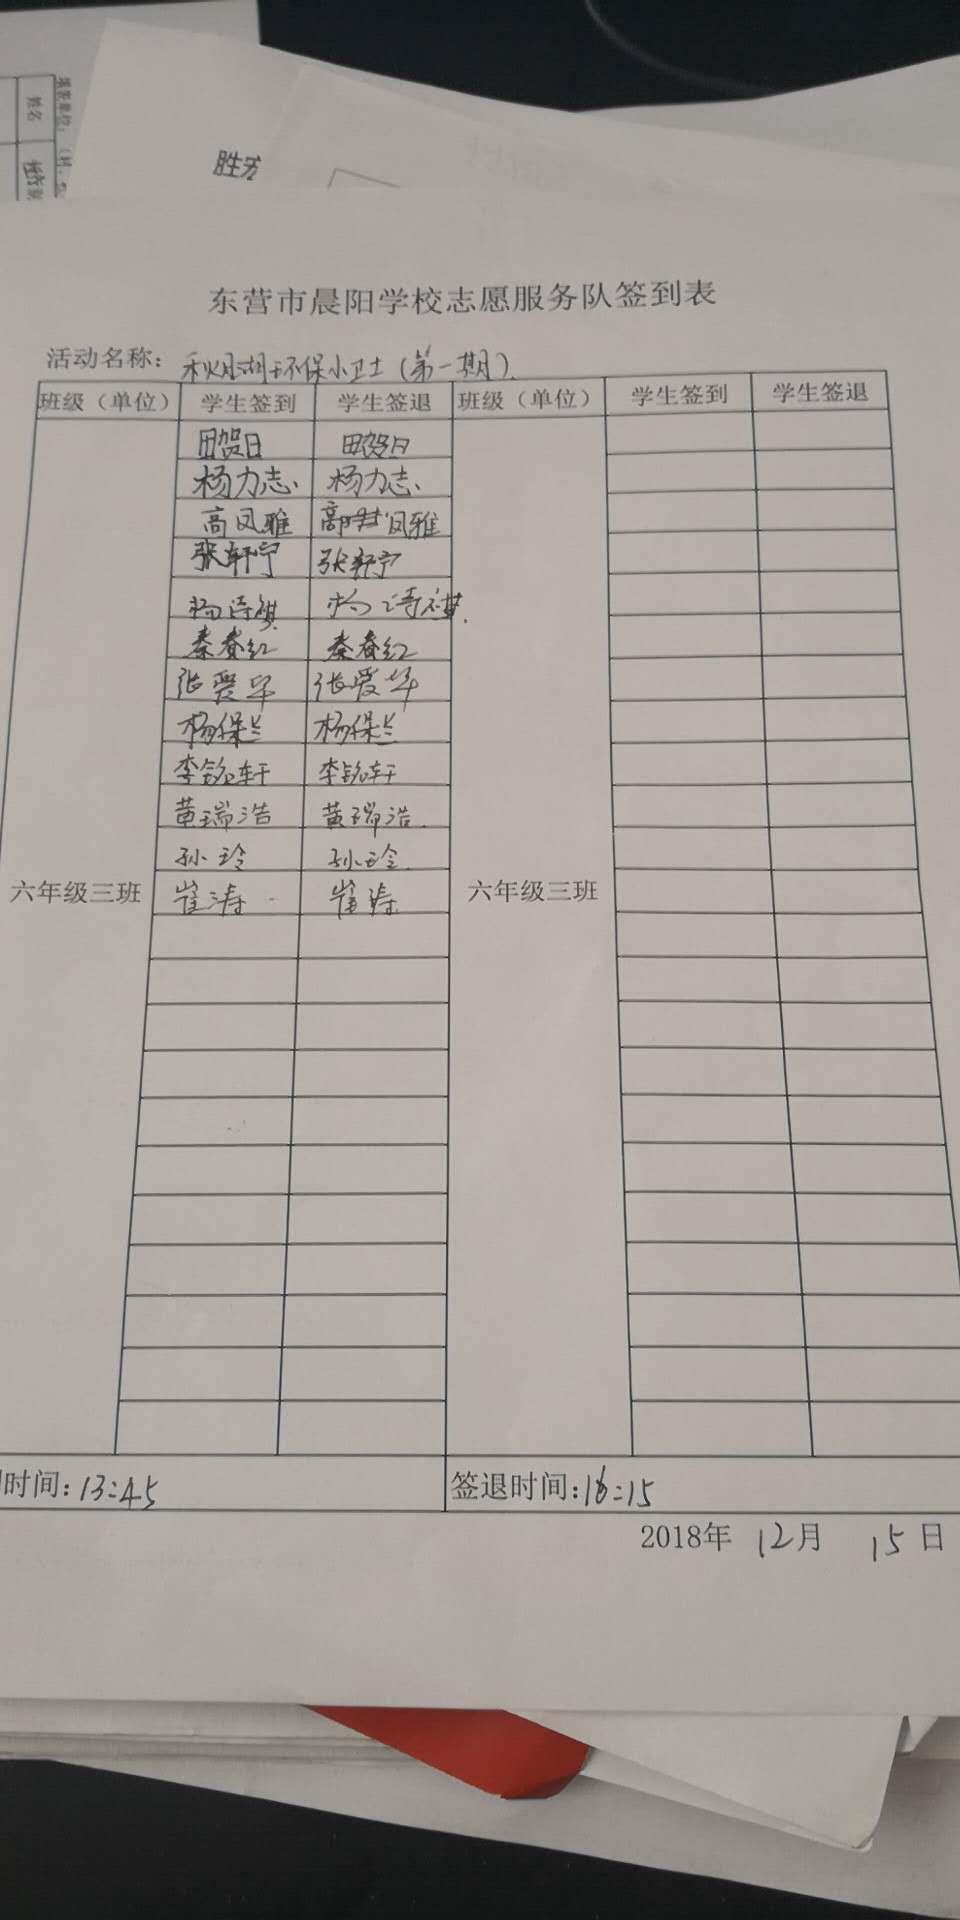 填表单位：（村、
姓名
胜方
东营市晨阳学校志愿服务队签到表
活动名称：秋月湖环保小卫士（第一期）
班级（单位） 学生签到 学生签退 班级（单位） 学生签到 学生签退
田贺日 田贺日
杨力志 杨力志
高凤雅 高 凤雅
张轩宁 张轩宁
杨诗祺 杨诗祺
秦春红 秦春红
张爱华 张爱华
杨保兰 杨保兰
李铭轩 李铭轩
黄瑞浩 黄瑞浩
孙玲 孙玲
六年级三班 崔涛 崔涛 六年级三班
时间：13:45 签退时间：16:15
2018年 12月 15日